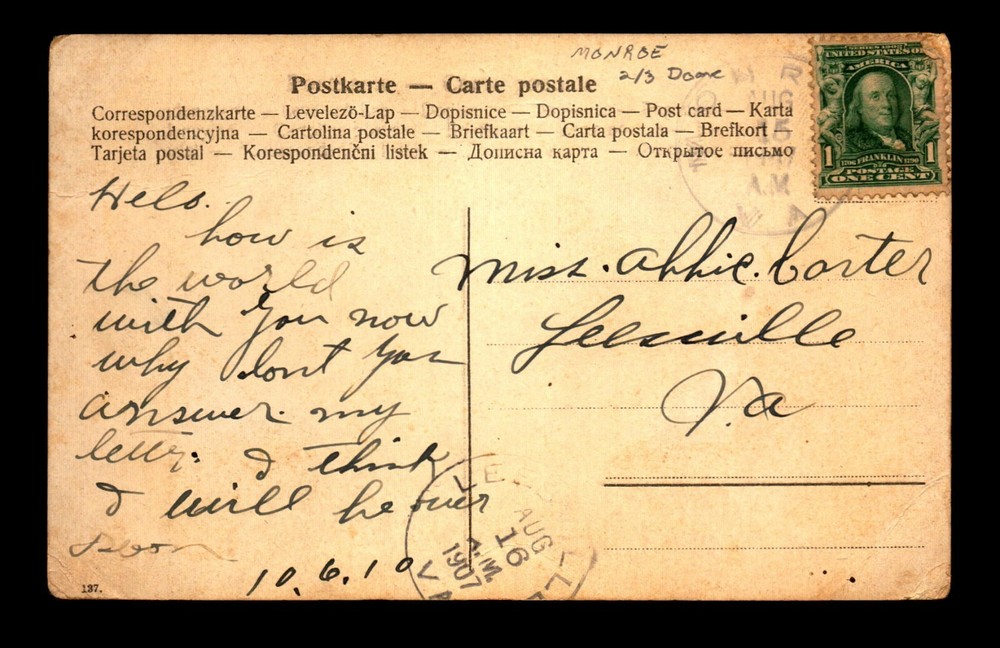 MONROE
2/3 Doane
Postkarte — Carte postale
Correspondenzkarte — Levelező-Lap — Dopisnice — Dopisnica — Post card — Karta
korespondencyjna — Cartolina postale — Briefkaart — Carta postala — Brefkort
Tarjeta postal — Korespondenční listek — Дописна карта — Открытое письмо
SERIES 1902
UNITED STATES OF
AMERICA
1 1706 FRANKLIN 1790 1
POSTAGE
ONE CENT
AUG
15
A.M.
VA
Helo.
how is
the world
with you now
why dont you
answer. my
letter. I think
I will be over
soon
10.6.10
Miss. Abbie. Carter
Leesville
Va
LEE
AUG
16
A.M.
1907
VA
137.